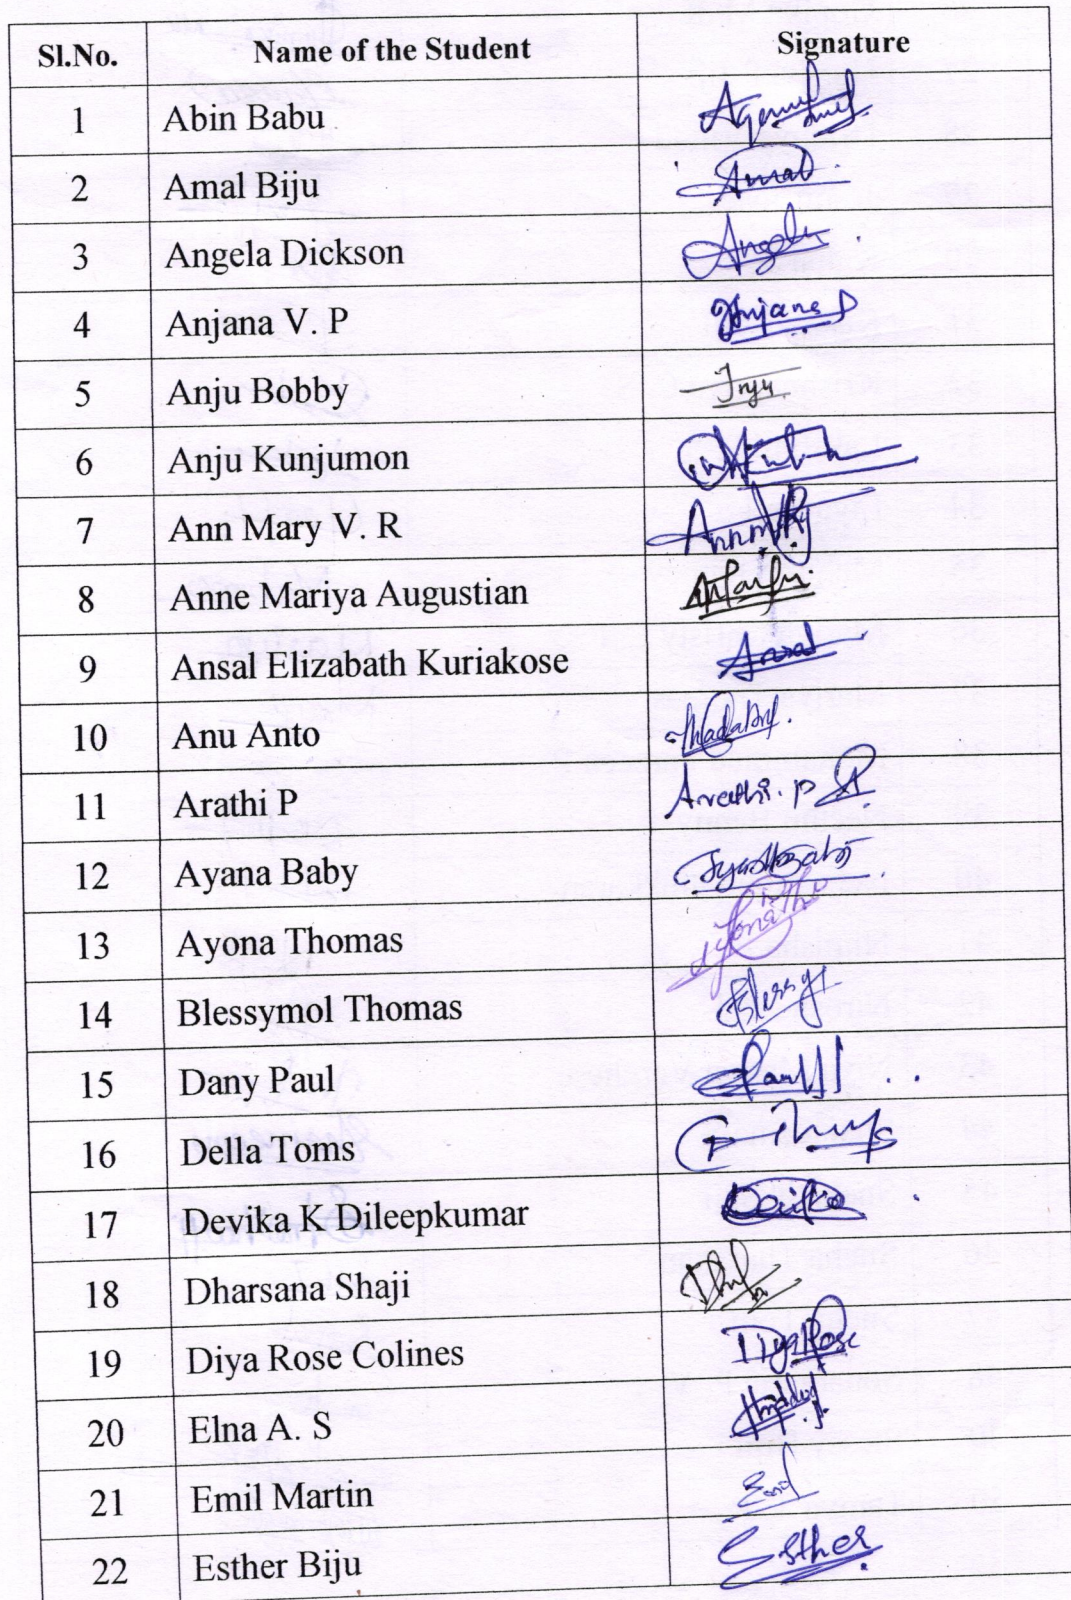 Sl.No. Name of the Student Signature
1 Abin Babu
2 Amal Biju Amal
3 Angela Dickson Angela
4 Anjana V. P Anjana
5 Anju Bobby
6 Anju Kunjumon
7 Ann Mary V. R
8 Anne Mariya Augustian
9 Ansal Elizabath Kuriakose
10 Anu Anto
11 Arathi P Arathi. P
12 Ayana Baby
13 Ayona Thomas
14 Blessymol Thomas Blessy
15 Dany Paul
16 Della Toms
17 Devika K Dileepkumar Devika
18 Dharsana Shaji
19 Diya Rose Colines Diya Rose
20 Elna A. S
21 Emil Martin
22 Esther Biju Esther